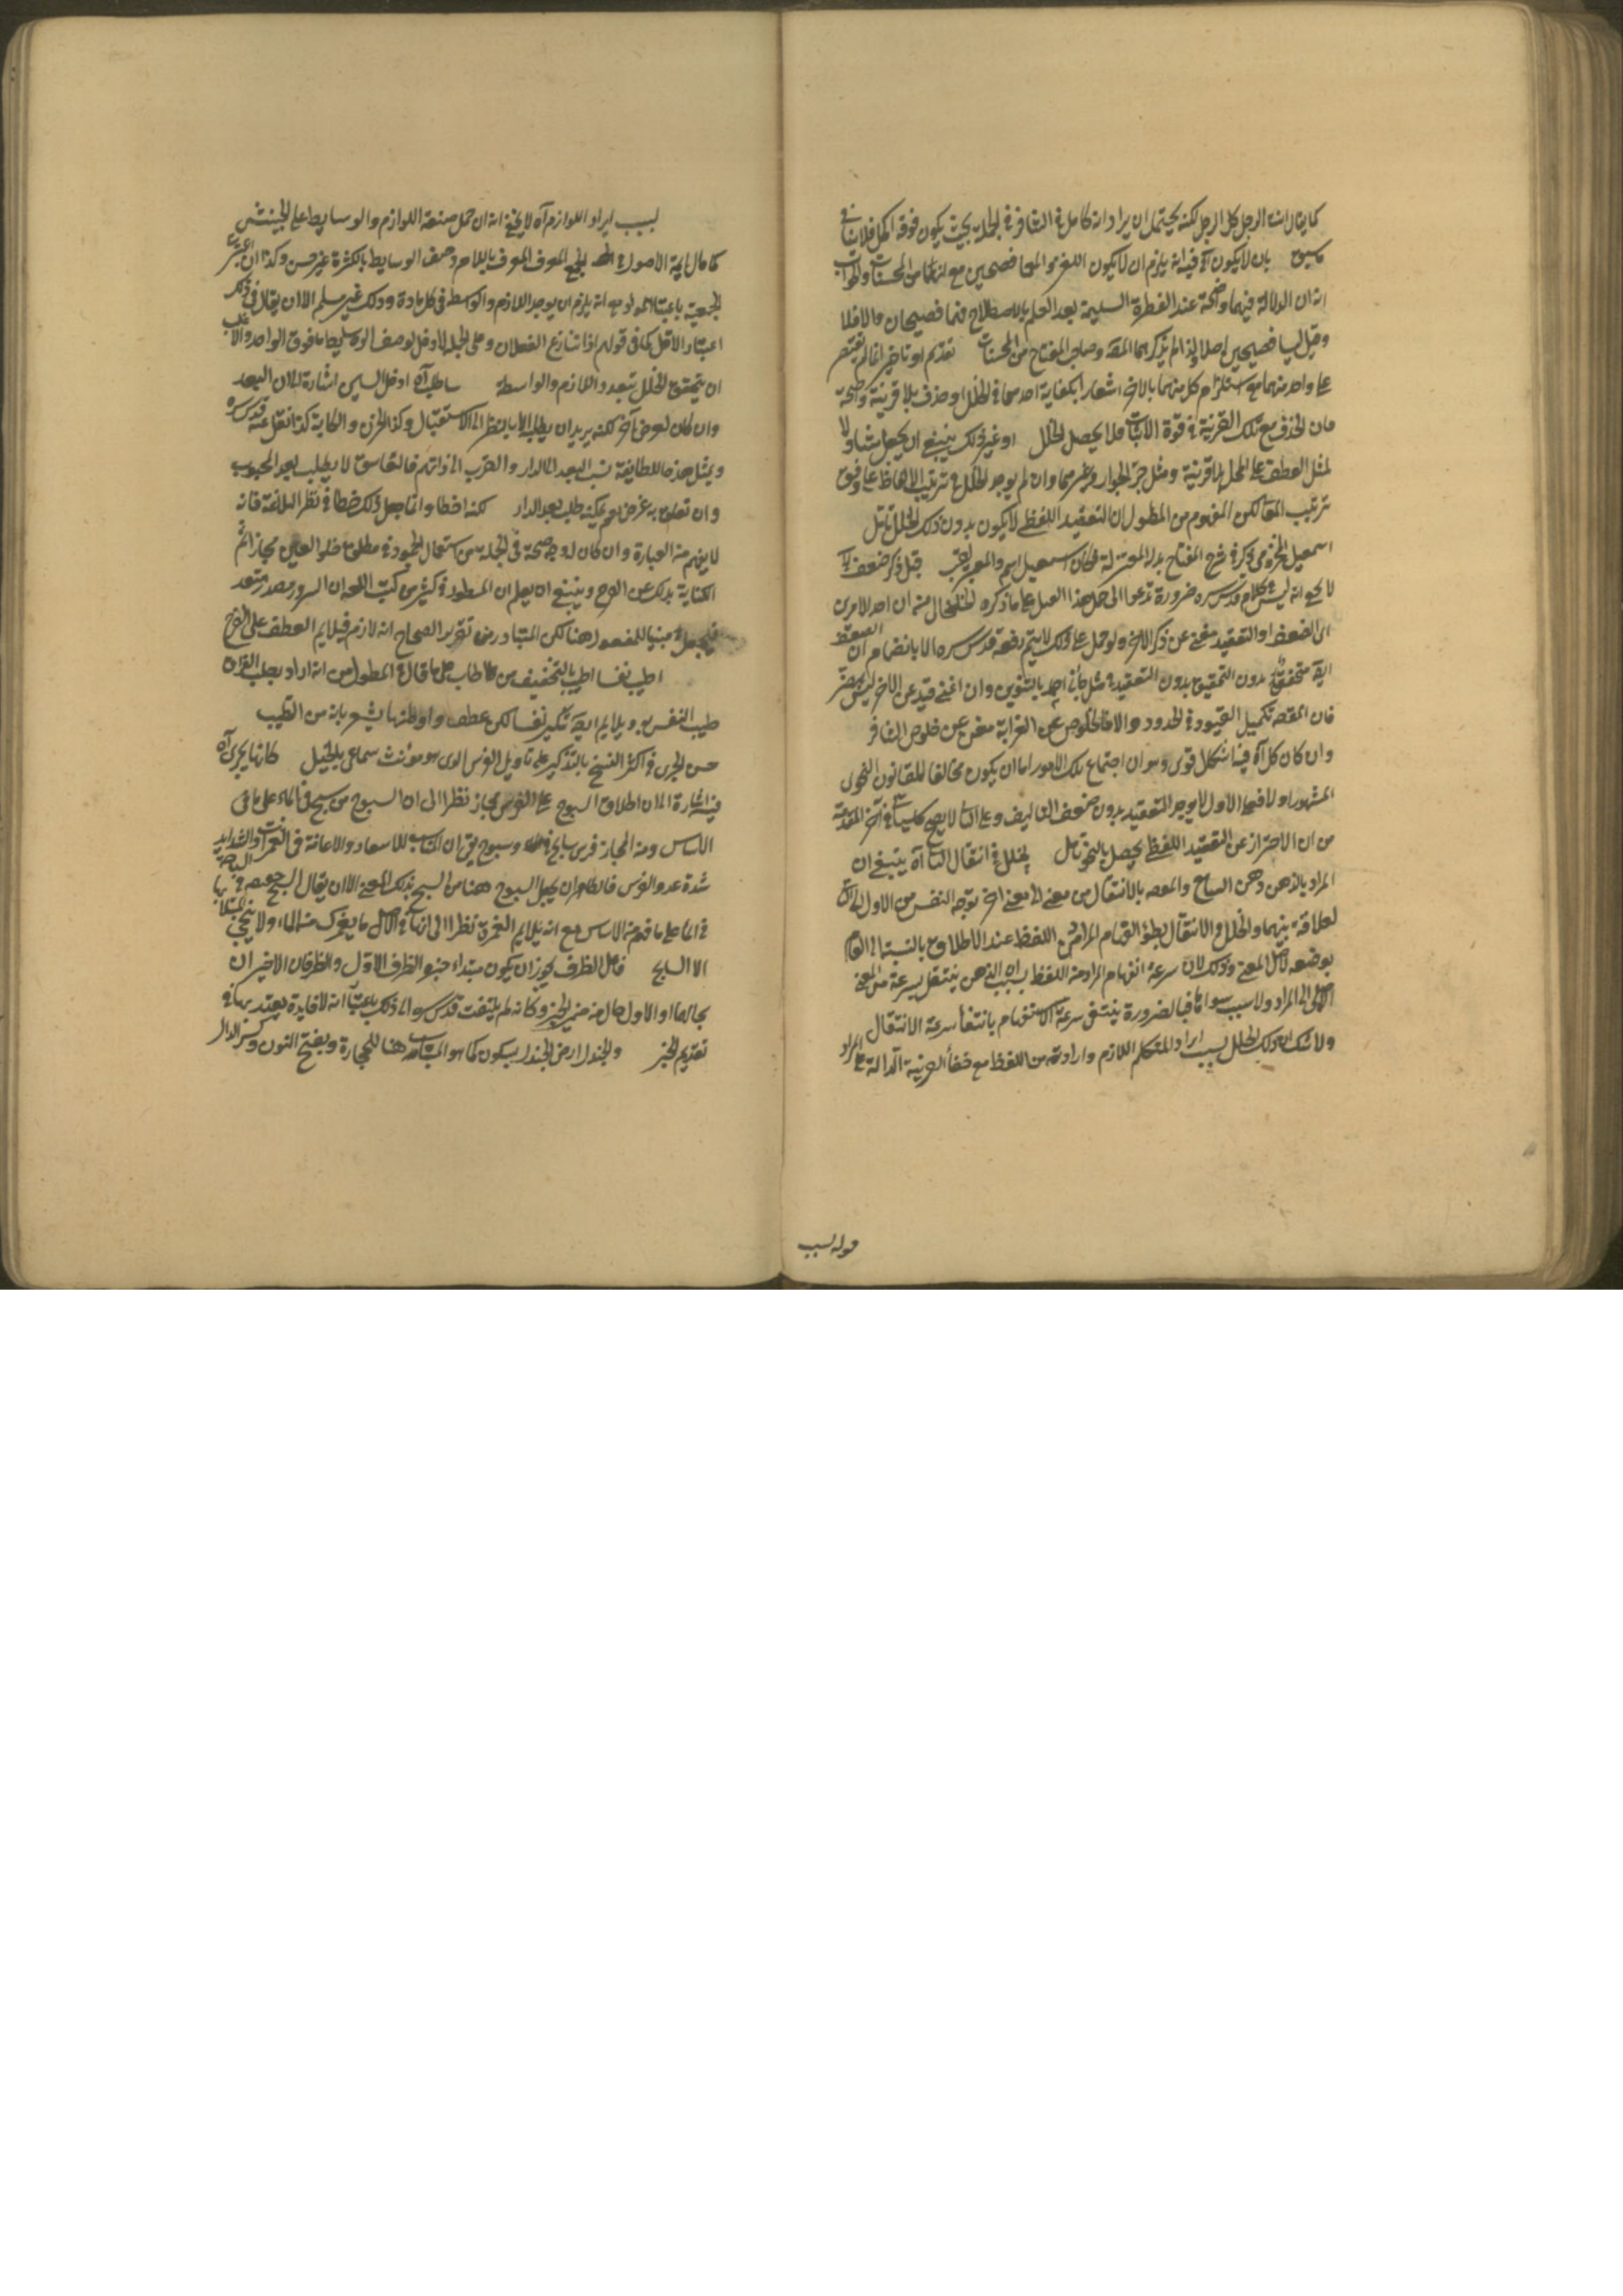 كما يقال انت الرجل كل الرجل لكنه يحتمل ان يراد انه كامل في التنافر في الجملة بحيث يكون فوقه اكمل فلا ينافي
ما سبق بان لا يكون آه فيه انه يلزم ان لا يكون اللغز والمعما فصيحين مع انهما من المحسنات والجواب
انه ان الدلالة فيهما واضحة عند الفطرة السليمة بعد العلم بالاصطلاح فهما فصيحان والا فلا
وقيل ليسا فصيحين اصلا ولذا لم يذكرهما المصنف وصاحب المفتاح من المحسنات تقديم او تاخير انما لم يقتصر
على واحد منهما مع استلزام كل منهما بالاخر اشعارا بكفاية احدهما في الخلل او حذف بلا قرينة واضحة
فان الحذف مع تلك القرينة في قوة الاثبات فلا يحصل الخلل او غير ذلك ينبغي ان يجعل شاملا
لمثل العطف على المحل بلا قرينة ومثل جر الجوار وغيرهما وان لم يوجد الخلل في ترتيب الالفاظ على وفق
ترتيب المعاني لكن المفهوم من المطول ان التعقيد اللفظي لا يكون بدون ذلك الخلل تامل
اسمعيل المخزومي ذكر في شرح المفتاح بدل المغيرة قبل ذكر ضعف آه
لا يخفى انه ليس في كلام قدس سره ضرورة تدعو الى حمل هذا القول على ما ذكره الخلخالي منه ان احد الامرين
اى الضعف او التعقيد مغن عن ذكر الاخر ولو حمل على ذلك لا يتم دفعه قدس سره الا بانضمام ان الضعف
ايضا متحقق بدون التعقيد في مثل جاءني احمد بالتنوين وان اغنى قيد عن الاخر ليس بمضر
فان المقصد تكميل القيود في الحدود والا فالخلوص عن الغرابة مغن عن خلوص التنافر
وان كان كل آه فيه اشكال قوى وهو ان اجتماع تلك الامور اما ان يكون مخالفا للقانون النحوى
المشهور اولا فعلى الاول لا يوجد التعقيد بدون ضعف التاليف وعلى الثاني لا يصح كلية ما في آخر المقدمة
من ان الاحتراز عن التعقيد اللفظي يحصل بالنحو تامل لخلل في انتقال الذهن آه ينبغي ان
المراد بالذهن ذهن السامع والمقصد بالانتقال من معنى الى معنى اخر توجه النفس من الاول الى الثاني
لعلاقة بينهما والخلل في الانتقال بطؤ انفهام المراد من اللفظ عند الاطلاق بالنسبة الى العالم
بوضعه لاصل المعنى وذلك لان سرعة انفهام المراد من اللفظ بسبب ان الذهن ينتقل بسرعة من المعنى
الاصلي الى المراد ولا سبب سواه فبالضرورة ينتفي سرعة الانفهام بانتفاء سرعة الانتقال
ولا شك ان ذلك الخلل بسبب ايراد المتكلم اللازم وارادته من اللفظ مع خفاء القرينة الدالة على المراد
قوله بسبب
بسبب ايراد اللوازم آه لا يخفى انه ان حمل صنعة اللوازم والوسايط على الجنس
كما قال ائمة الاصول في الجمع المعرف باللام وصف الوسايط بالكثرة غير حسن وكذا ان اعتبرت
الجمعية باعتبار المواد مع انه يلزم ان يوجد اللازم والواسطة في كل مادة وذلك غير مسلم الا ان يقال في ذكر
اعتبار الاقل كما في قولهم اذا تنازع الفعلان وعلى الجملة لا دخل لوصف الوسايط بما فوق الواحد والا غلب
ان يتحقق الخلل بتعدد اللازم والواسطة ساطلب آه ادخل السين اشارة الى ان البعد
وان كان لغرض آخر لكنه يريد ان يطلب الا بالنظر الى الاستقبال وكذا الحزن والكآبة كذا نقل عنه قدس سره
وبمثل هذه اللطايفة نسب البعد الى الدار والقرب الى ذواتهم فالعاشق لا يطلب بعد المحبوب
وان تعلق به غرض بل يمكنه طلب بعد الدار لكنه اخطا وانما جعل ذلك خطا في نظر البلاغة فانه
لا يفهم من العبارة وان كان له وجه صحة في الجملة من استعمال الجمود في مطلق خلو العين مجازا ثم
الكناية بذلك عن الفرح وينبغي ان يعلم ان المسطور في كثير من كتب اللغة ان السرور مصدر متعد
فيجعل مبنيا للمفعول هنا لكن المتبادر من تقرير الصحاح انه لازم فيلايم العطف على الفرح
اطيب نفسا اطيب بالتخفيف من طاب على ما قال في المطول من انه اراد بطلب الفراق
طيب النفس به ويلايم ايضا تنكير نفسا لكن عطف واوطنها يشعر بانه من التطييب
حسن الجري في اكثر النسخ بالتذكير على تاويل الفرس الذى هو مؤنث سماعي بالخيل كانها تجرى آه
فيه اشارة الى ان اطلاق السبوح على الفرس مجاز نظرا الى ان السبوح من سبح في الماء على ما في
الاساس ومن المجاز فرس سابح وسبوح ان المناسب للاسعاد والاعانة في الغمرات والشدايد
شدة عدو الفرس فالظاهر ان يجعل السبوح ههنا من السبح بذلك المعنى الا ان يقال السبح
في الماء على ما فهم من الاساس مع انه يلايم الغمرة نظرا الى انها في الاصل ما يغمرك من الماء ولا ينجي
الا السابح فاعل الظرف يجوز ان يكون مبتداء خبره الظرف الاول والظرفان الاخيران
بحالهما او الاول حال من ضمير الخبر وكانه لم يلتفت قدس سره الى ذلك باعتبار انه لا فايدة يعتد بها في
تقديم الخبر والجندل ارض الجندل بسكون كما هو المناسب هنا للحجارة وبفتح النون وكسر الدال